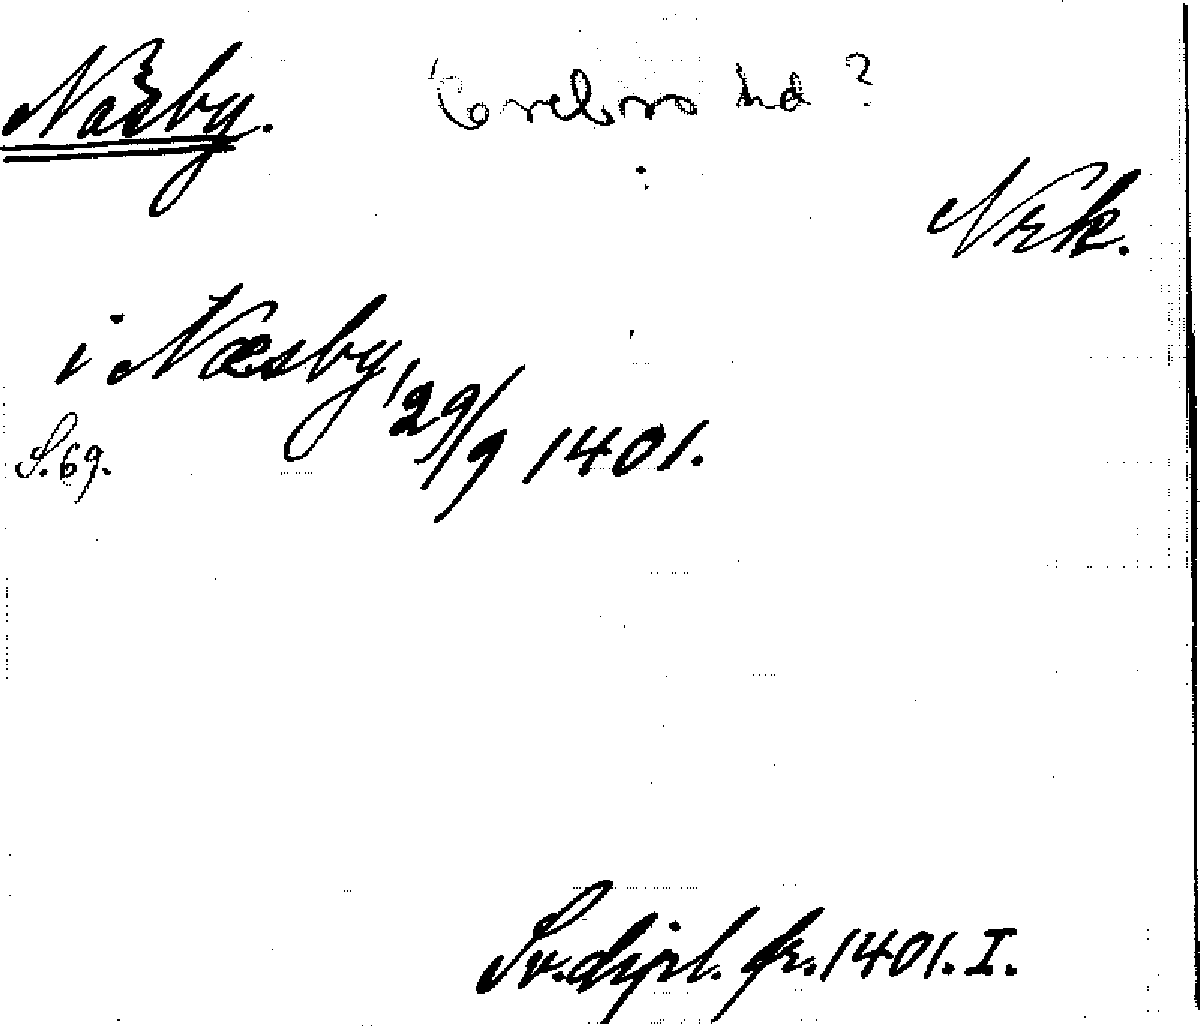 Näsby. Örebro hd ?
Nrk.
i Næsby, 29/9 1401.
S. 69.
Sv. dipl. fr. 1401. I.